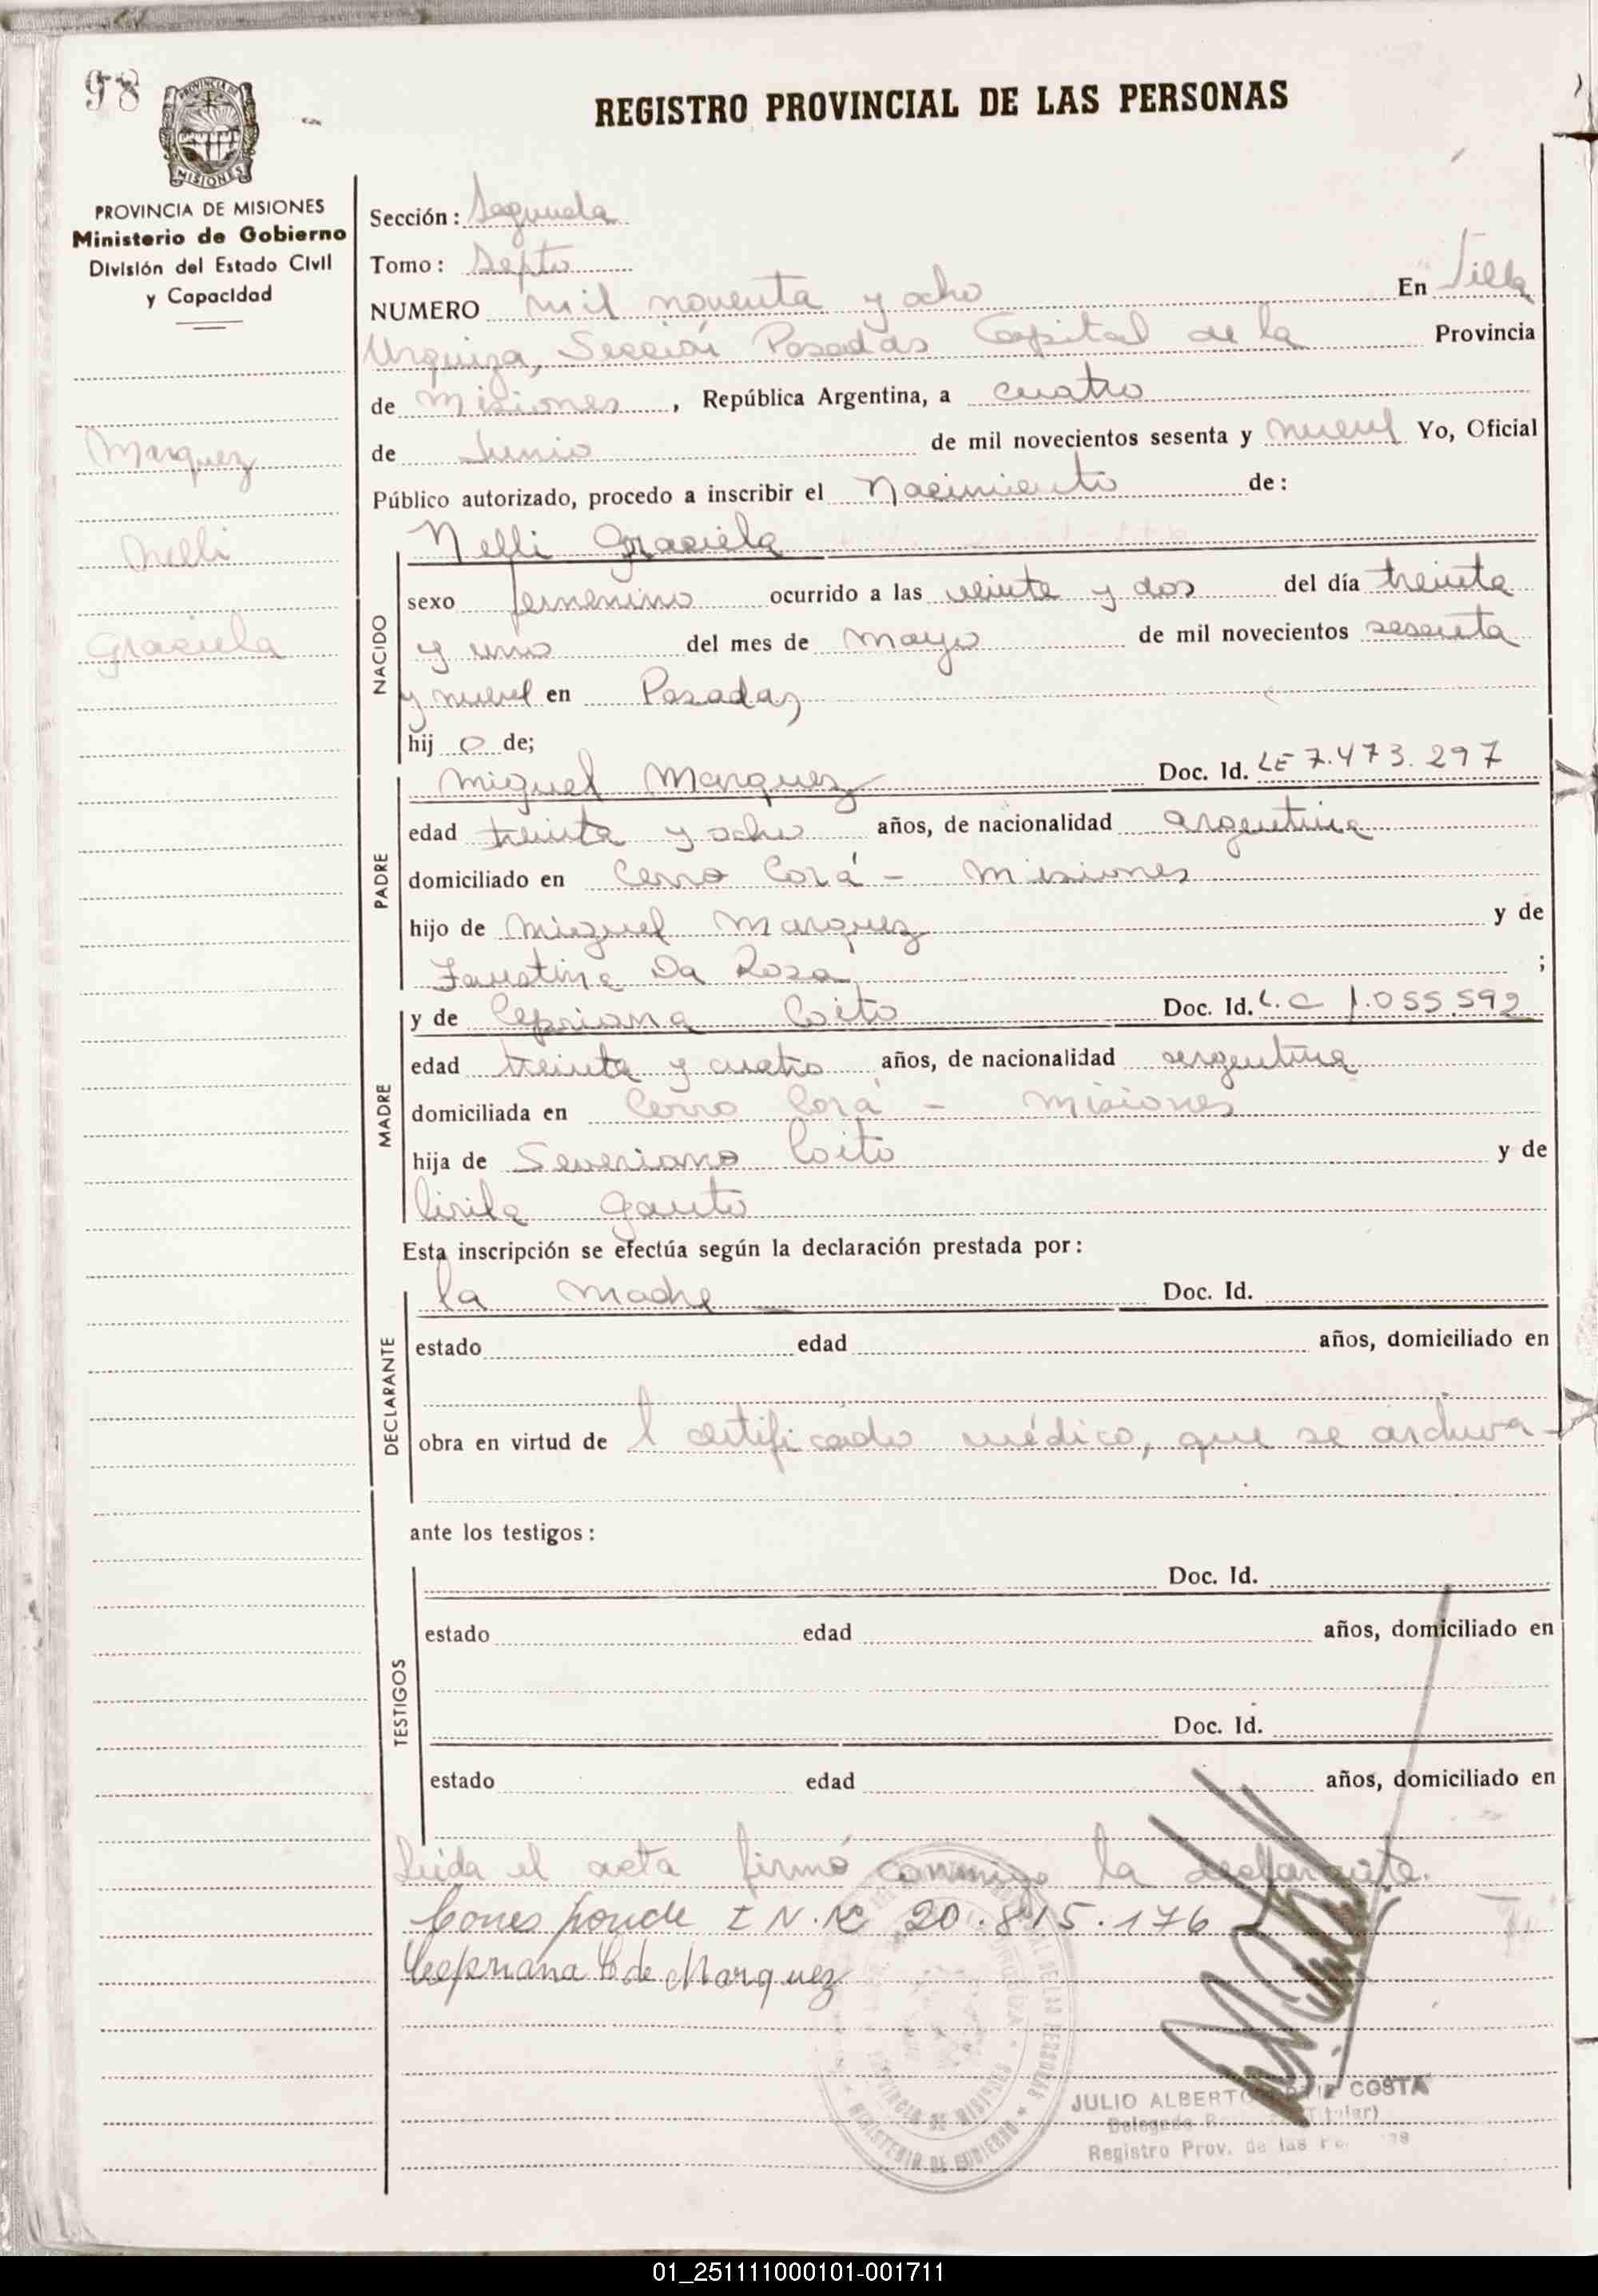 98
REGISTRO PROVINCIAL DE LAS PERSONAS
PROVINCIA DE MISIONES
Ministerio de Gobierno
División del Estado Civil
y Capacidad
Marquez
Nelli
Graciela
Sección: Segunda
Tomo: Septo
NUMERO mil noventa y ocho En Villa
Urquiza, Sección Posadas Capital de la Provincia
de Misiones, República Argentina, a cuatro
de Junio de mil novecientos sesenta y nueve Yo, Oficial
Público autorizado, procedo a inscribir el Nacimiento de:
NACIDO
Nelli Graciela
sexo femenino ocurrido a las veinte y dos del día treinta
y uno del mes de mayo de mil novecientos sesenta
y nueve en Posadas
hij o de;
PADRE
Miguel Marquez Doc. Id. LE 7.473.297
edad treinta y ocho años, de nacionalidad argentina
domiciliado en Cerro Corá - Misiones
hijo de Miguel Marquez y de
Faustina Da Rosa ;
MADRE
y de Cepriana Coito Doc. Id. L.C 1.055.592
edad treinta y cuatro años, de nacionalidad argentina
domiciliada en Cerro Corá - Misiones
hija de Severiano Coito y de
Cirila Gauto
Esta inscripción se efectúa según la declaración prestada por:
DECLARANTE
la madre Doc. Id.
estado edad años, domiciliado en
obra en virtud de l certificado médico, que se archiva-
ante los testigos:
TESTIGOS
Doc. Id.
estado edad años, domiciliado en
Doc. Id.
estado edad años, domiciliado en
Leida el acta firmó conmigo la declarante.
Corresponde I N.Nº 20.815.176
Cepriana C de Marquez
JULIO ALBERTO COSTA
Delegado (Titular)
Registro Prov. de las
PROVINCIA DE MISIONES
MINISTERIO DE GOBIERNO
01_251111000101-001711